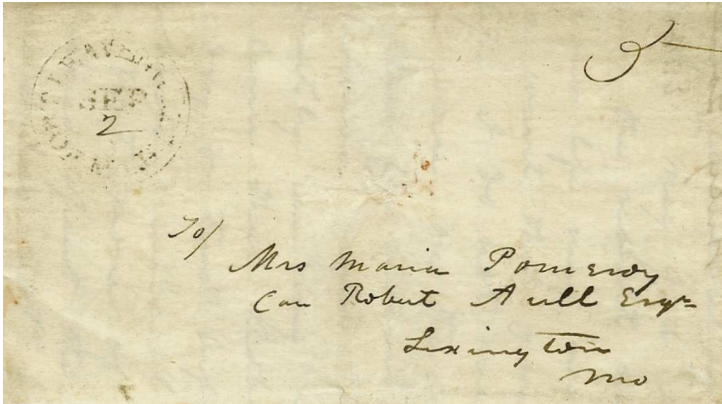 FORT LEAVENWORTH
SEP
2
5
To/
Mrs Maria Pomeroy
Care Robert Aull Esqr
Lexington
Mo